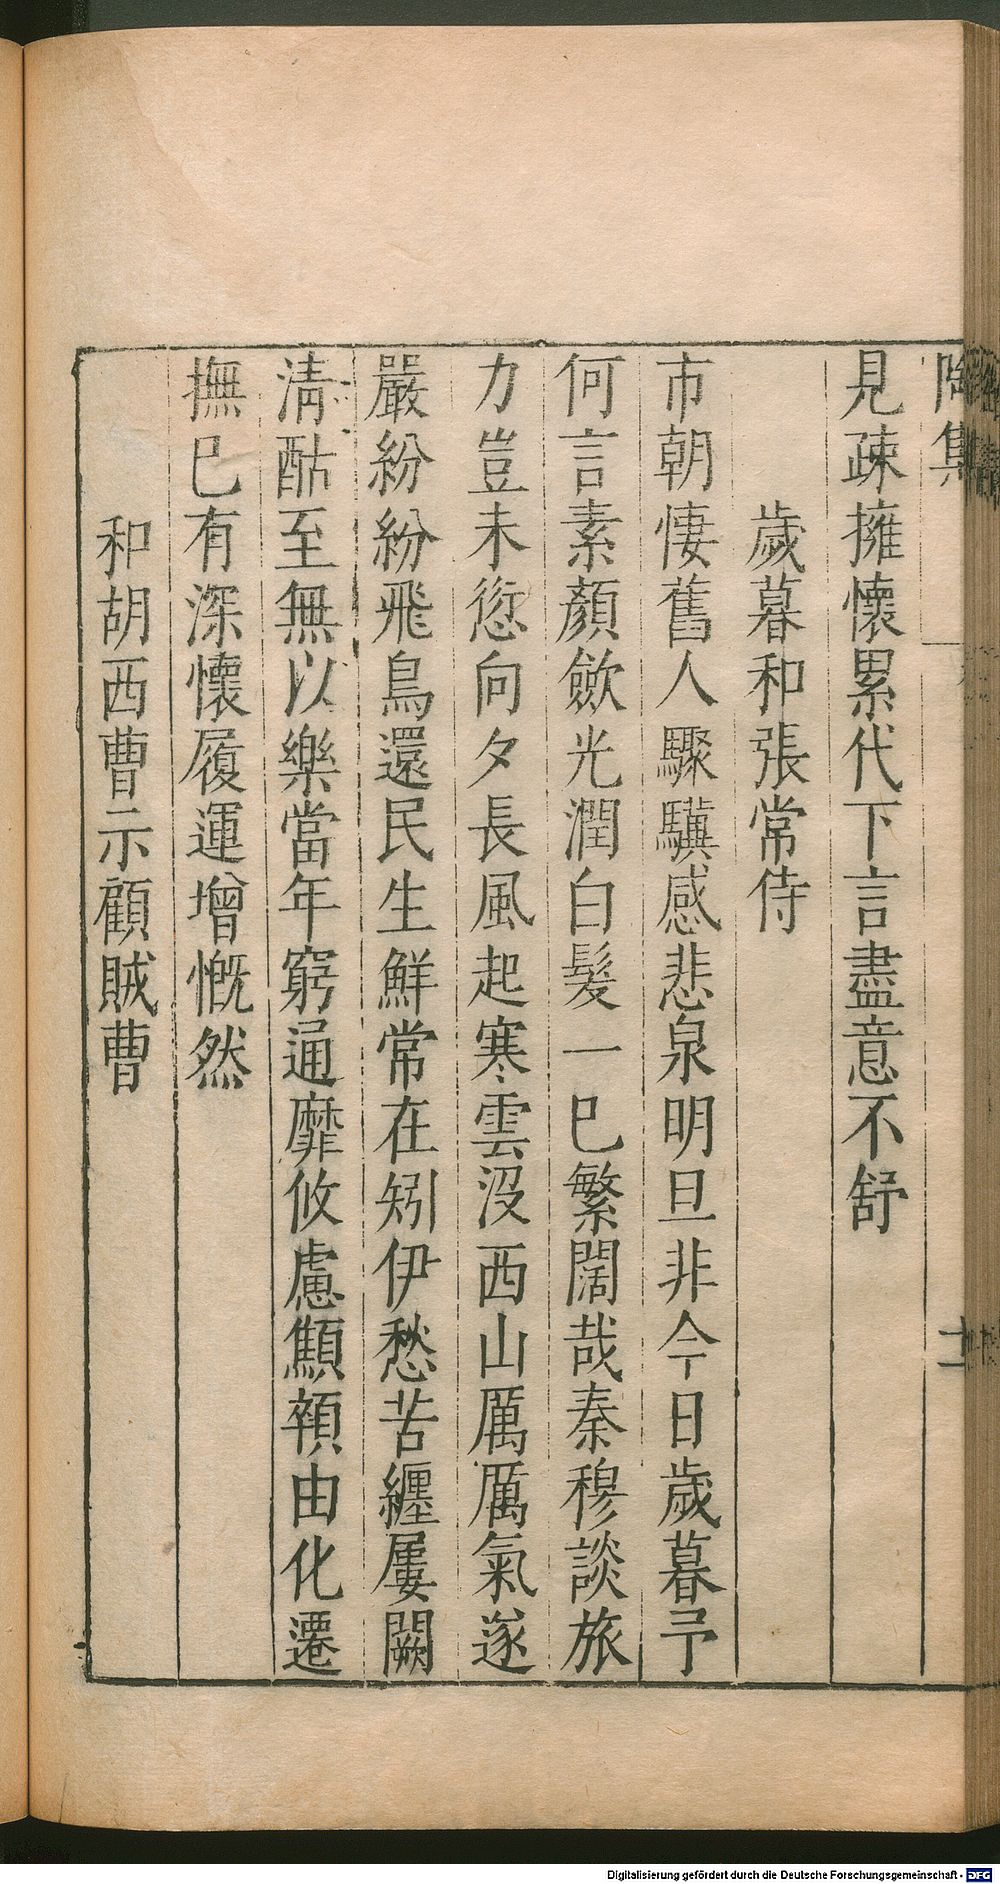 陶集
見疎擁懷累代下言盡意不舒
歲暮和張常侍
市朝悽舊人驟驥感悲泉明旦非今日歲暮予
何言素顏歛光潤白髮一已繁闊哉秦穆談旅
力豈未愆向夕長風起寒雲沒西山厲厲氣遂
嚴紛紛飛鳥還民生鮮常在矧伊愁苦纏屢闕
清酤至無以樂當年窮通靡攸慮顦顇由化遷
撫已有深懷履運增慨然
和胡西曹示顧賊曹
Digitalisierung gefördert durch die Deutsche Forschungsgemeinschaft - DFG